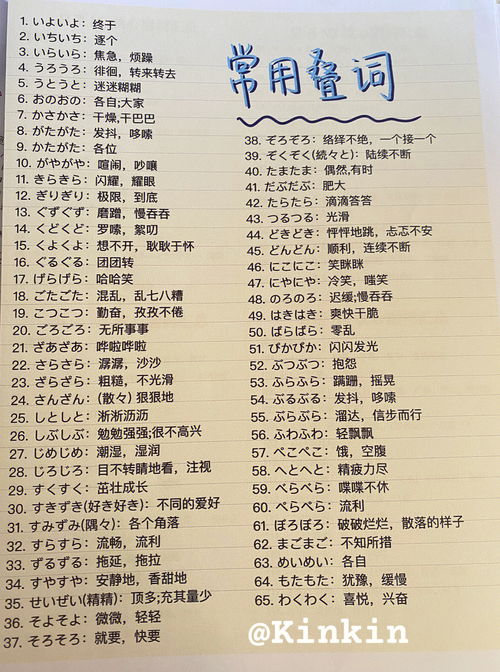 常用叠词
1. いよいよ：终于
2. いちいち：逐个
3. いらいら：焦急，烦躁
4. うろうろ：徘徊，转来转去
5. うとうと：迷迷糊糊
6. おのおの：各自;大家
7. かさかさ：干燥,干巴巴
8. がたがた：发抖，哆嗦
9. かたがた：各位
10. がやがや：喧闹，吵嚷
11. きらきら：闪耀，耀眼
12. ぎりぎり：极限，到底
13. ぐずぐず：磨蹭，慢吞吞
14. くどくど：罗嗦，絮叨
15. くよくよ：想不开，耿耿于怀
16. ぐるぐる：团团转
17. げらげら：哈哈笑
18. ごたごた：混乱，乱七八糟
19. こつこつ：勤奋，孜孜不倦
20. ごろごろ：无所事事
21. ざあざあ：哗啦哗啦
22. さらさら：潺潺，沙沙
23. ざらざら：粗糙，不光滑
24. さんざん：(散々) 狠狠地
25. しとしと：淅淅沥沥
26. しぶしぶ：勉勉强强;很不高兴
27. じめじめ：潮湿，湿润
28. じろじろ：目不转睛地看，注视
29. すくすく：茁壮成长
30. すきずき(好き好き)：不同的爱好
31. すみずみ(隅々)：各个角落
32. すらすら：流畅，流利
33. ずるずる：拖延，拖拉
34. すやすや：安静地，香甜地
35. せいぜい(精精)：顶多;充其量少
36. そよそよ：微微，轻轻
37. そろそろ：就要，快要
38. ぞろぞろ：络绎不绝，一个接一个
39. ぞくぞく(続々と)：陆续不断
40. たまたま：偶然,有时
41. だぶだぶ：肥大
42. たらたら：滴滴答答
43. つるつる：光滑
44. どきどき：怦怦地跳，忐忑不安
45. どんどん：顺利，连续不断
46. にこにこ：笑眯眯
47. にやにや：冷笑，嗤笑
48. のろのろ：迟缓;慢吞吞
49. はきはき：爽快干脆
50. ばらばら：零乱
51. ぴかぴか：闪闪发光
52. ぶつぶつ：抱怨
53. ふらふら：蹒跚，摇晃
54. ぶるぶる：发抖，哆嗦
55. ぶらぶら：溜达，信步而行
56. ふわふわ：轻飘飘
57. ぺこぺこ：饿，空腹
58. へとへと：精疲力尽
59. べらべら：喋喋不休
60. ぺらぺら：流利
61. ぼろぼろ：破破烂烂，散落的样子
62. まごまご：不知所措
63. めいめい：各自
64. もたもた：犹豫，缓慢
65. わくわく：喜悦，兴奋
@Kinkin